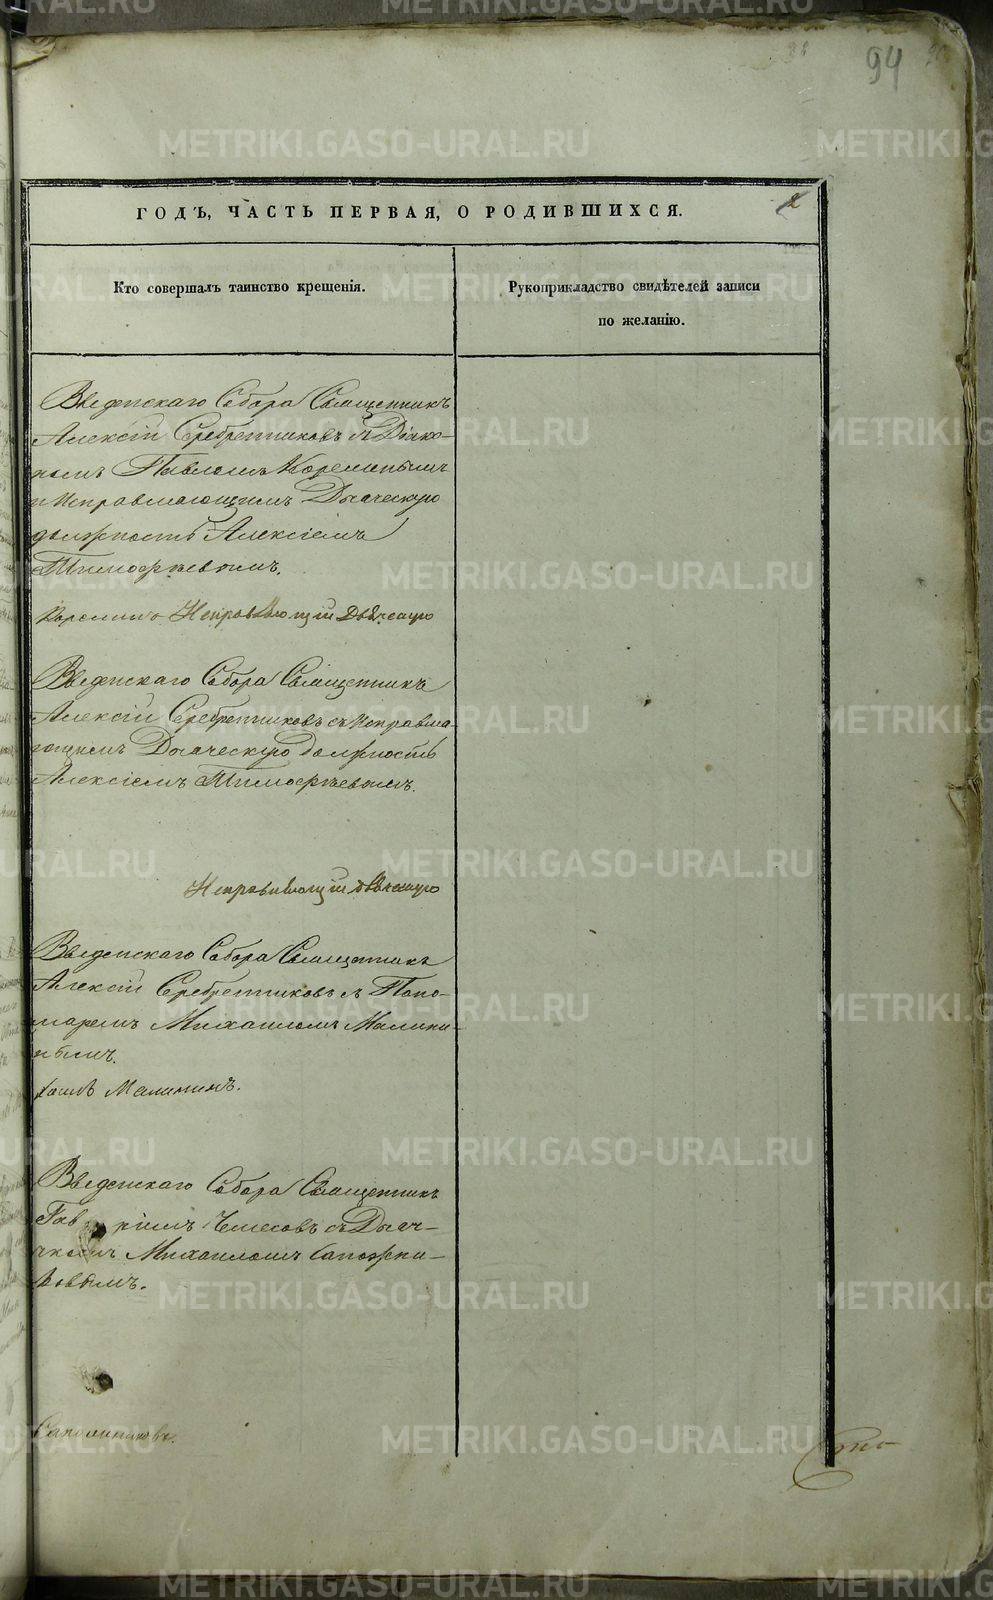 94
ГОДЪ, ЧАСТЬ ПЕРВАЯ, О РОДИВШИХСЯ.
2
Кто совершалъ таинство крещенія.
Рукоприкладство свидѣтелей записи
по желанію.
Введенскаго Собора Священникъ
Алексій Серебренниковъ съ Діако-
номъ Павломъ Кореминымъ
и Исправляющимъ Дьяческую
должность Алексіемъ
Тимофѣевымъ.
Кореминъ Исправляющій Дьяческую
Введенскаго Собора Священникъ
Алексій Серебренниковъ съ Исправля-
ющимъ Дьяческую должность
Алексіемъ Тимофѣевымъ.
Исправляющій дьяческую
Введенскаго Собора Священникъ
Алексій Серебренниковъ съ Поно-
маремъ Михаиломъ Малини-
нымъ.
Малининъ.
Введенскаго Собора Священникъ
Гав кіилъ Чемесовъ съ Дьяч-
комъ Михаиломъ Сапожни-
ковымъ.
Сапожниковъ.
METRIKI.GASO-URAL.RU